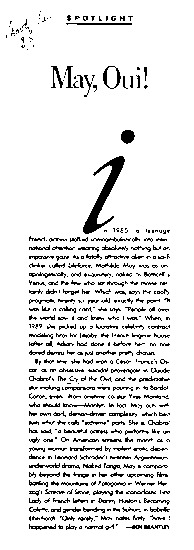 SPOTLIGHT
May, Oui!
in 1985 a teenage
French actress stalked unmagnanimously into inter-
national attention wearing absolutely nothing but an
impassive gaze. As a fatally attractive alien in a sci-fi
clinker called Lifeforce, Mathilda May was as un-
apologetically, and exquisitely, naked as Botticelli's
Venus, and the few who sat through the movie cer-
tainly didn't forget her. Which was, says the coolly
pragmatic twenty-six-year-old, exactly the point. "It
was like a calling card," she says. "People all over
the world saw it and knew who I was." When, in
1989, she picked up a lucrative celebrity contract
modeling bras for Lejaby, the French lingerie house
(after all, Adjani had done it before her), no one
dared dismiss her as just another pretty chassis.
By that time she had won a César, France's Os-
car, as an obsessive, suicidal provocateur in Claude
Chabrol's The Cry of the Owl, and the predictable
star-making comparisons were pouring in: to Bardot,
Caron, even, from onetime co-star Yves Montand,
who should know—Monroe. In fact, May, with
her own dark, demon-driven complexity, which bet-
ters what she calls "extreme" parts. She is, Chabrol
has said, "a beautiful actress who performs like an
ugly one." On American screens this month as a
young woman transformed by violent erotic depen-
dence in Leonard Schrader's twenties Argentinean-
underworld drama, Naked Tango, May is compara-
bly beyond the fringe in her other upcoming films:
battling the mountains of Patagonia in Werner Her-
zog's Scream of Stone, playing the scandalous First
Lady of French letters in Danny Huston's Becoming
Colette, and gender bending in the Sahara, in Isabelle
Eberhardt. "Only rarely," May notes flatly, "have I
happened to play a normal girl." —BEN BRANTLEY